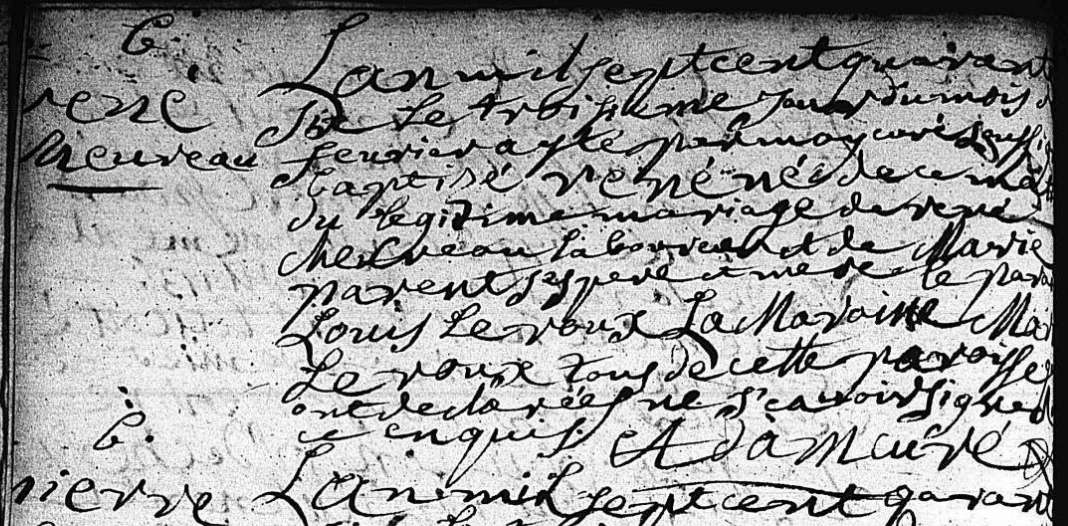 b.
rene
Meureau
Lan mil sept cent quarant
le troisieme jour du mois
feurier a este par moy curé soussi
baptisé rené né de ce
du legitime mariage de rené
laboureur et de Marie
parent ses pere et mere le para
Louis Le roux La Maraine Mar
Le roux tous de cette paroisse
ont declarées ne scavoir signe
ce enquis. Adam curé
b.
pierre
Lan mil sept cent quaran